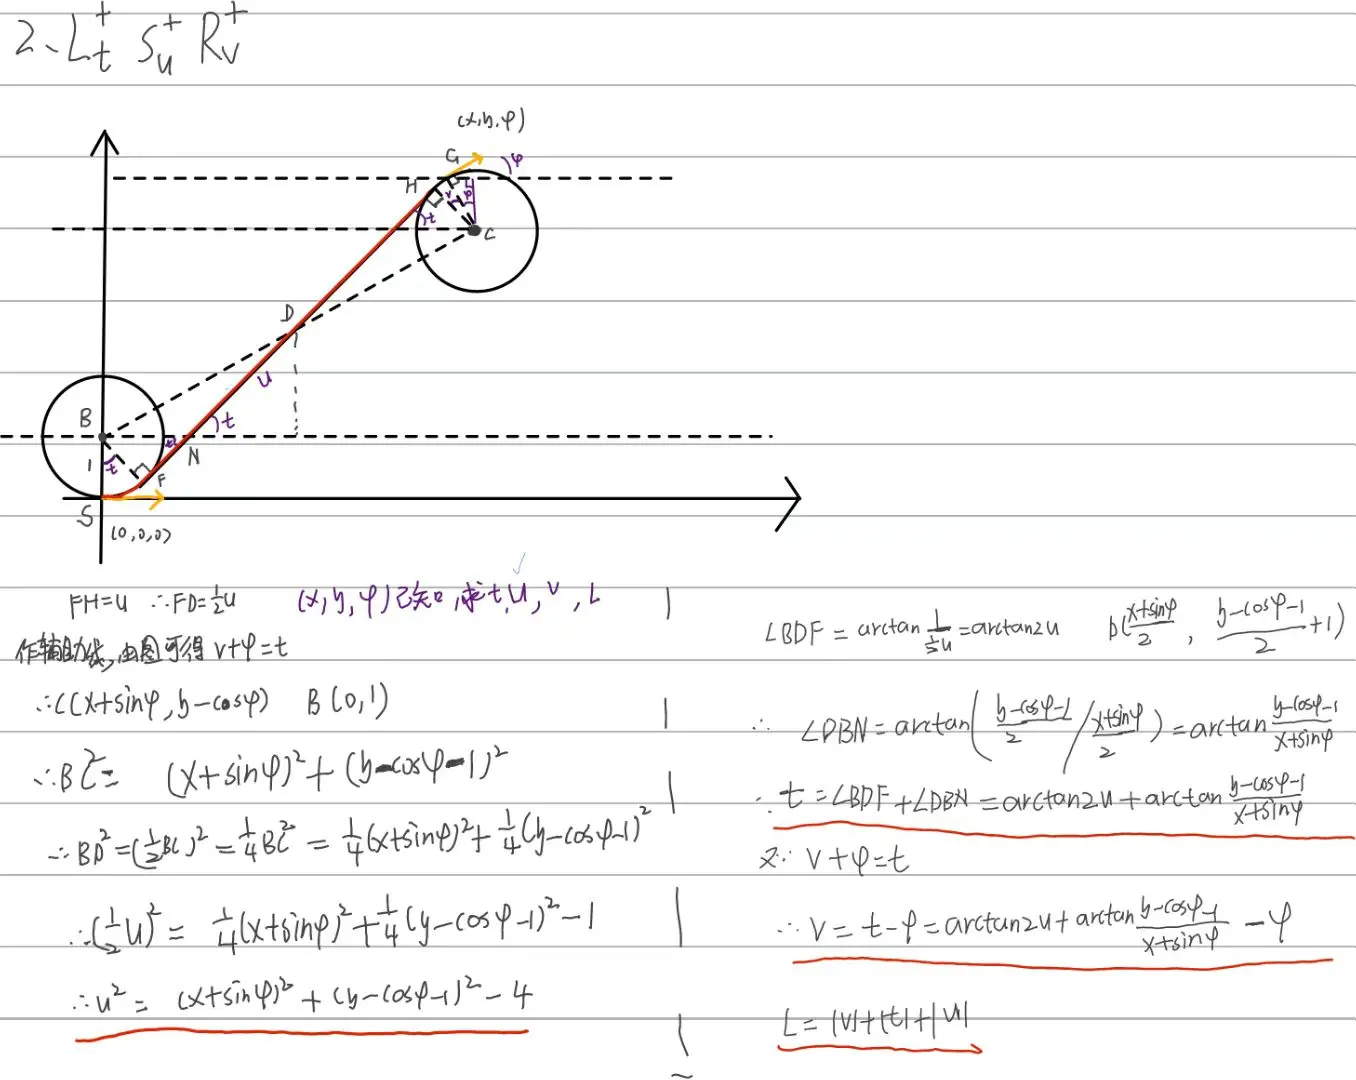 2、L_t^+ S_u^+ R_v^+
(x,y,φ)
G
φ
H
t
C
D
u
B
t
N
1
t
F
S
(0,0,0)
FH=u ∴FD=½u
(x,y,φ)已知,求t,u,v,L
作辅助线,由图可得 v+φ=t
∴C(x+sinφ,y-cosφ) B(0,1)
∴BC²= (x+sinφ)²+(y-cosφ-1)²
∴BD²=(½BC)²=¼BC²=¼(x+sinφ)²+¼(y-cosφ-1)²
∴(½u)²= ¼(x+sinφ)²+¼(y-cosφ-1)²-1
∴u²= (x+sinφ)²+(y-cosφ-1)²-4
∠BDF=arctan 1/(½u)=arctan2u D((x+sinφ)/2, (y-cosφ-1)/2+1)
∴ ∠DBN=arctan((y-cosφ-1)/2 / (x+sinφ)/2)=arctan (y-cosφ-1)/(x+sinφ)
∴ t=∠BDF+∠DBN=arctan2u+arctan (y-cosφ-1)/(x+sinφ)
又∵ v+φ=t
∴ v=t-φ=arctan2u+arctan (y-cosφ-1)/(x+sinφ) -φ
L=|v|+|t|+|u|